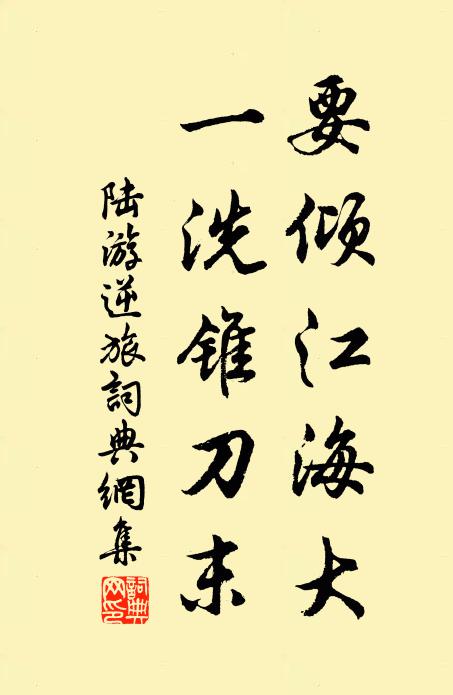 要倾江海大
一洗锥刀末
陆游逆旅詞典網集
詞典网印